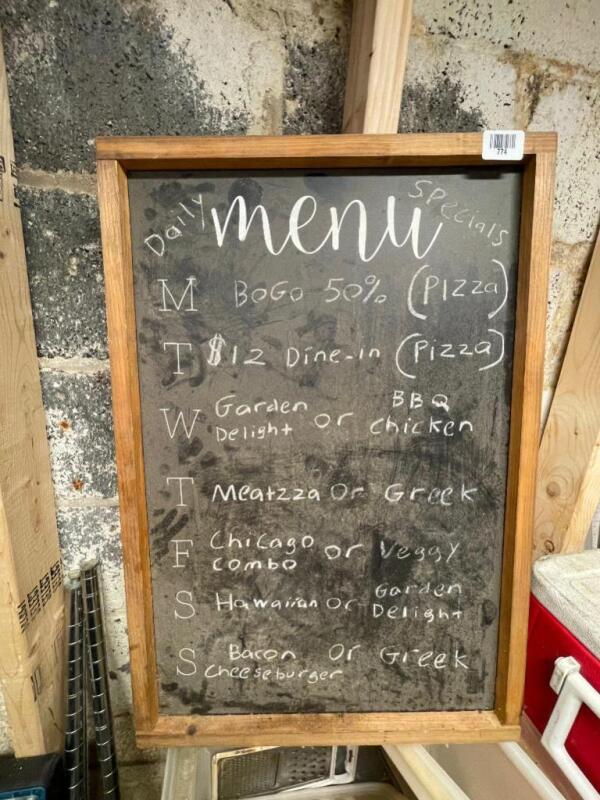 774
Daily menu Specials
M BOGO 50% (PIZZa)
T $12 Dine-in (Pizza)
W Garden Delight or BBQ chicken
T Meatzza Or Greek
F Chicago combo or Veggy
S Hawaiian Or Garden Delight
S Bacon Cheeseburger Or Greek